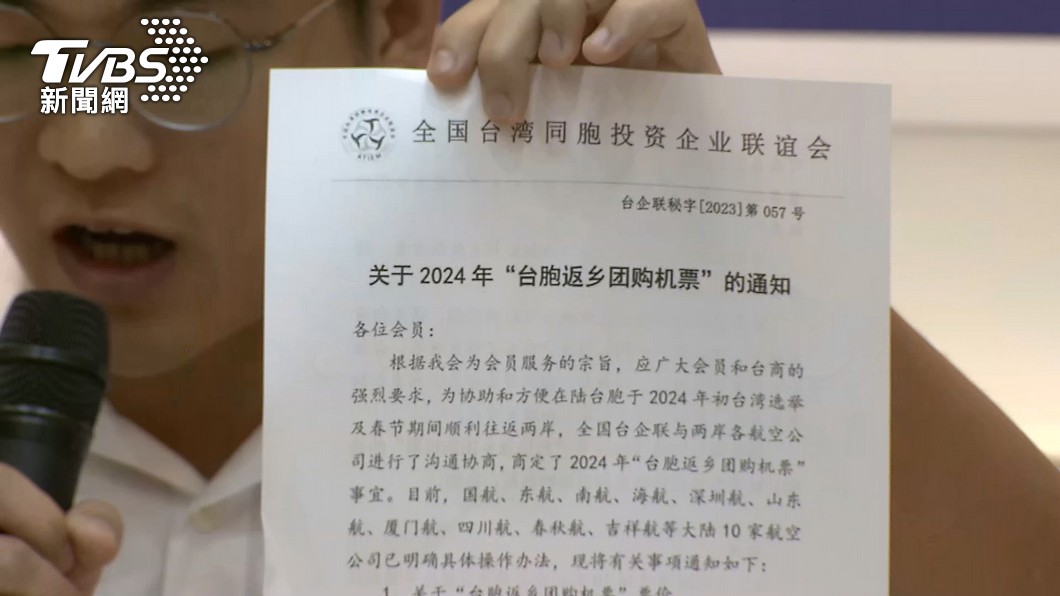 TVBS
新聞網
全国台湾同胞投资企业联谊会
ATIEM
台企联秘字[2023]第 057 号
关于 2024 年“台胞返乡团购机票”的通知
各位会员：
根据我会为会员服务的宗旨，应广大会员和台商的
强烈要求，为协助和方便在陆台胞于 2024 年初台湾选举
及春节期间顺利往返两岸，全国台企联与两岸各航空公
司进行了沟通协商，商定了 2024 年“台胞返乡团购机票”
事宜。目前，国航、东航、南航、海航、深圳航、山东
航、厦门航、四川航、春秋航、吉祥航等大陆 10 家航空
公司已明确具体操作办法，现将有关事项通知如下：
1、关于“台胞返乡团购机票”票价